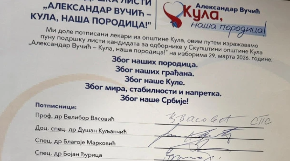 ПОДРШКА ЛИСТИ
„АЛЕКСАНДАР ВУЧИЋ –
КУЛА, НАША ПОРОДИЦА!“
Александар Вучић
Кула,
наша породица!
Ми доле потписани лекари из општине Кула, овим путем изражавамо
пуну подршку листи кандидата за одборнике у Скупштини општине Кула
„Александар Вучић – Кула, наша породица!“ на изборима 29. марта 2026. године.
Због наших породица.
Због наших грађана.
Због наше Куле.
Због мира, стабилности и напретка.
Због наше Србије!
Потписници:
Проф. др Велибор Васовић
Доц. спец. др Душан Куљанчић
Спец. др Благоје Марковић
Спец. др Бојан Ђурица